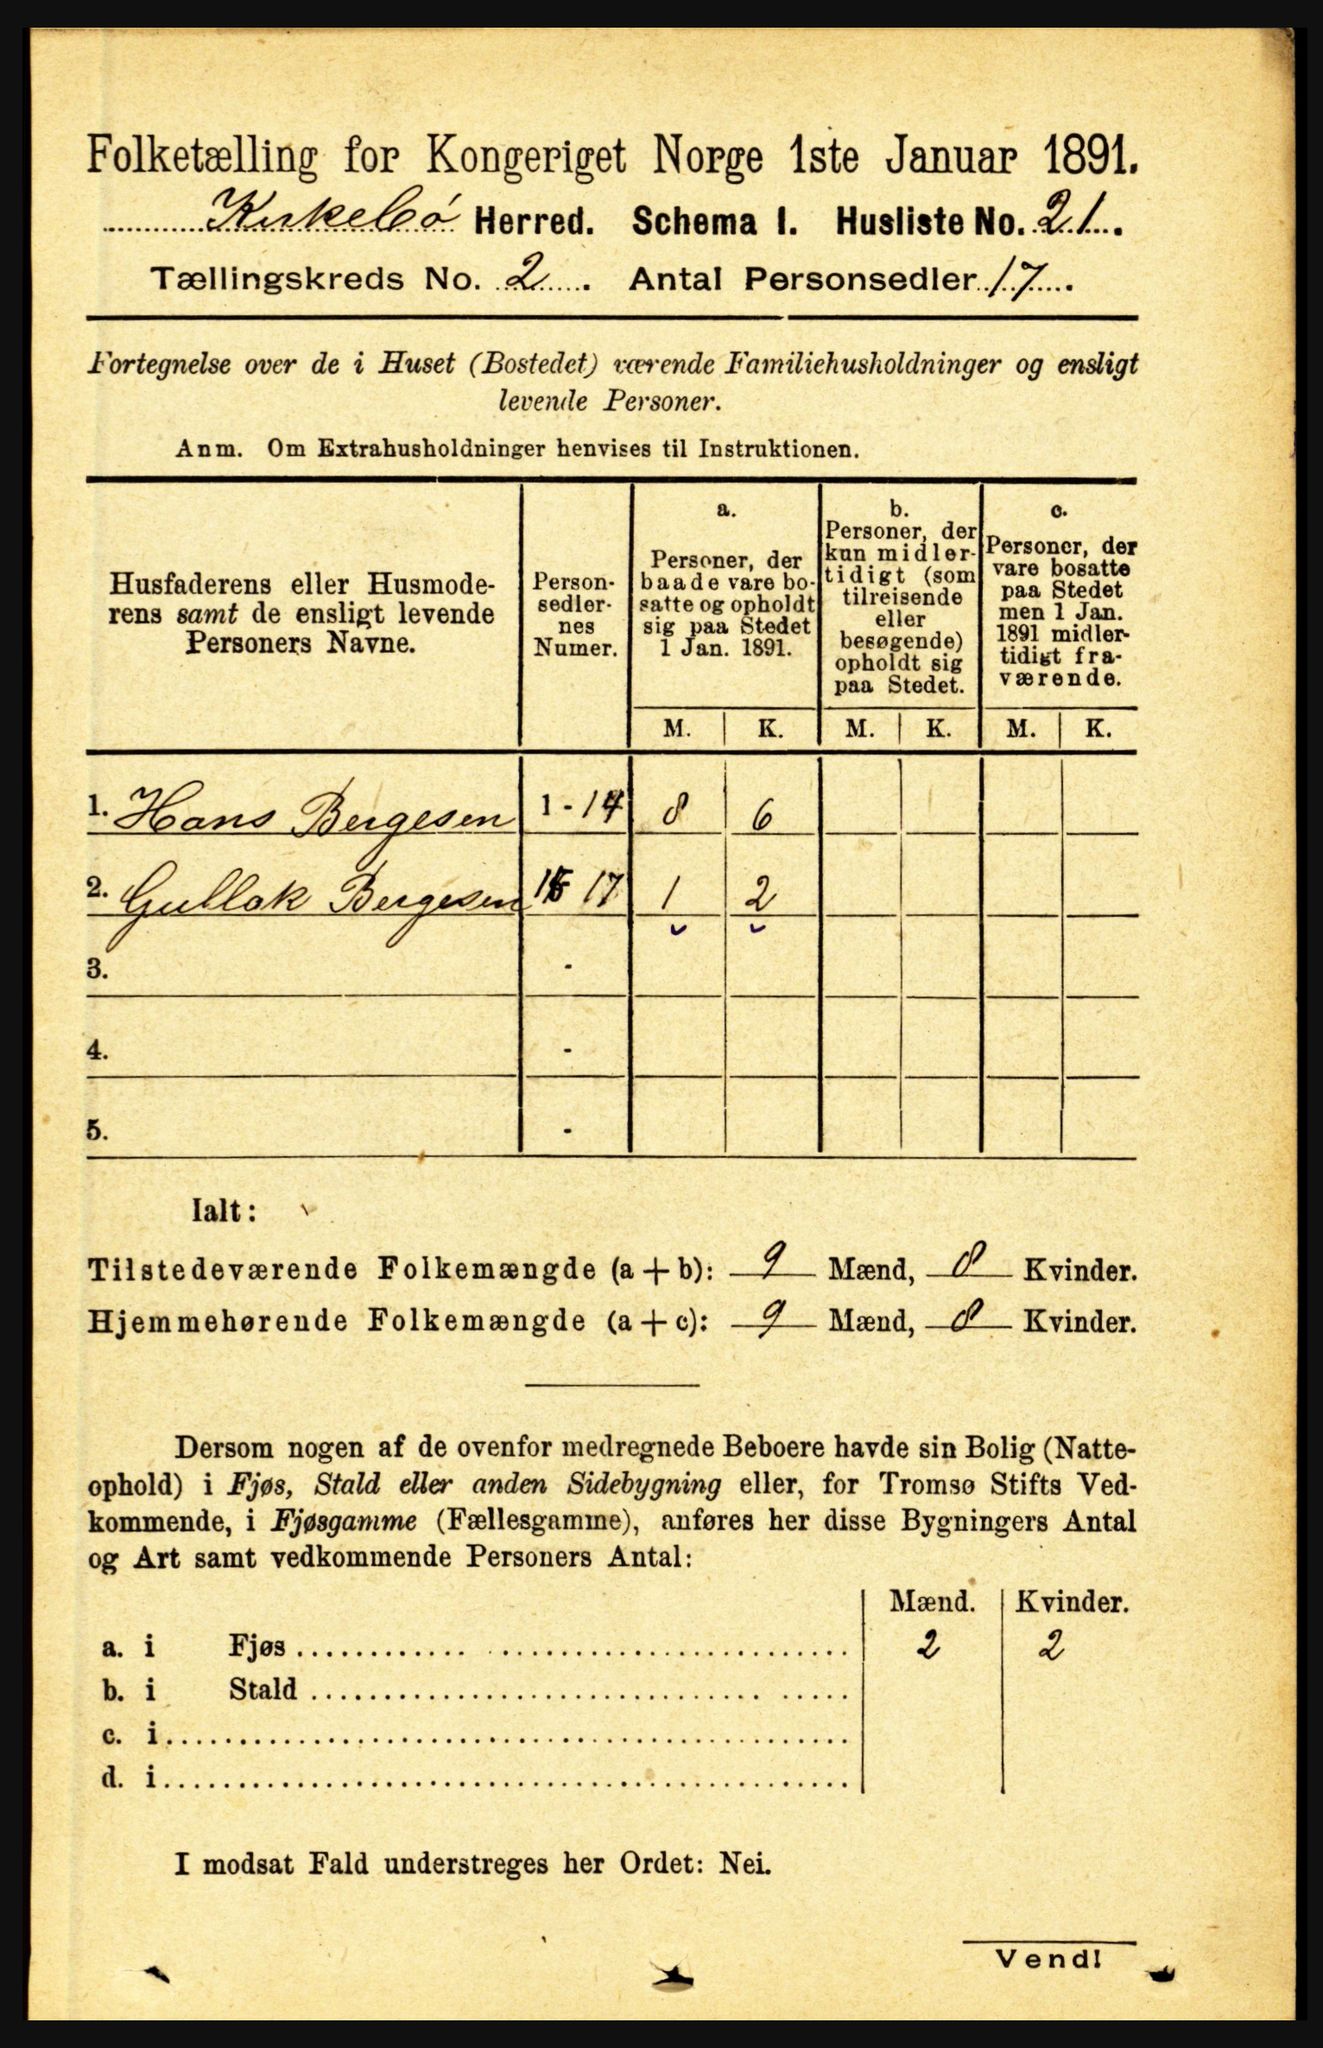 Folketælling for Kongeriget Norge 1ste Januar 1891.
Kirkebø Herred. Schema I. Husliste No. 21.
Tællingskreds No. 2. Antal Personsedler 17.
Fortegnelse over de i Huset (Bostedet) værende Familiehusholdninger og ensligt
levende Personer.
Anm. Om Extrahusholdninger henvises til Instruktionen.
Husfaderens eller Husmode-
rens samt de ensligt levende
Personers Navne.
Person-
sedler-
nes
Numer.
a.
Personer, der
baade vare bo-
satte og opholdt
sig paa Stedet
1 Jan. 1891.
b.
Personer, der
kun midler-
tidigt (som
tilreisende
eller
besøgende)
opholdt sig
paa Stedet.
c.
Personer, der
vare bosatte
paa Stedet
men 1 Jan.
1891 midler-
tidigt fra-
værende.
M. K. M. K. M. K.
1. Hans Bergesen 1 - 14 8 6
2. Gullak Bergesen 15 17 1 2
3. -
4. -
5. -
Ialt:
Tilstedeværende Folkemængde (a + b): 9 Mænd, 8 Kvinder.
Hjemmehørende Folkemængde (a + c): 9 Mænd, 8 Kvinder.
Dersom nogen af de ovenfor medregnede Beboere havde sin Bolig (Natte-
ophold) i Fjøs, Stald eller anden Sidebygning eller, for Tromsø Stifts Ved-
kommende, i Fjøsgamme (Fællesgamme), anføres her disse Bygningers Antal
og Art samt vedkommende Personers Antal:
Mænd. Kvinder.
a. i Fjøs 2 2
b. i Stald
c. i
d. i
I modsat Fald understreges her Ordet: Nei.
Vend!